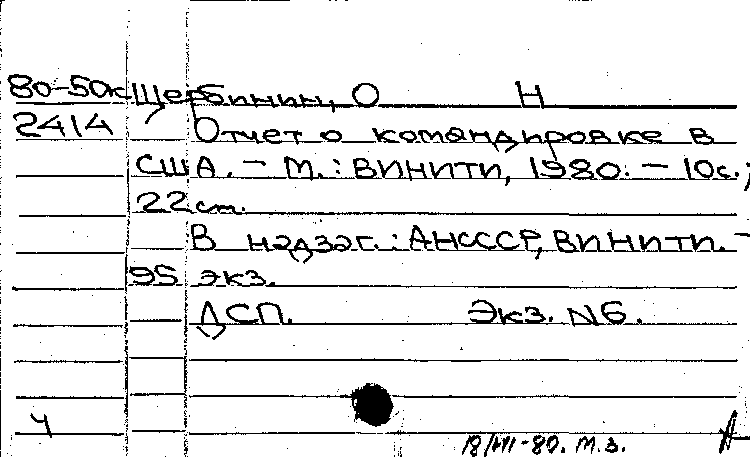 80-50к Щербинин, О Н
2414 Отчет о командировке в
США. - М.: ВИНИТИ, 1980. - 10с.;
22 cm.
В надзаг.: АНСССР, ВИНИТИ. -
95 экз.
ДСП. Экз. N6.
Ч
18/VII-80. М.З.